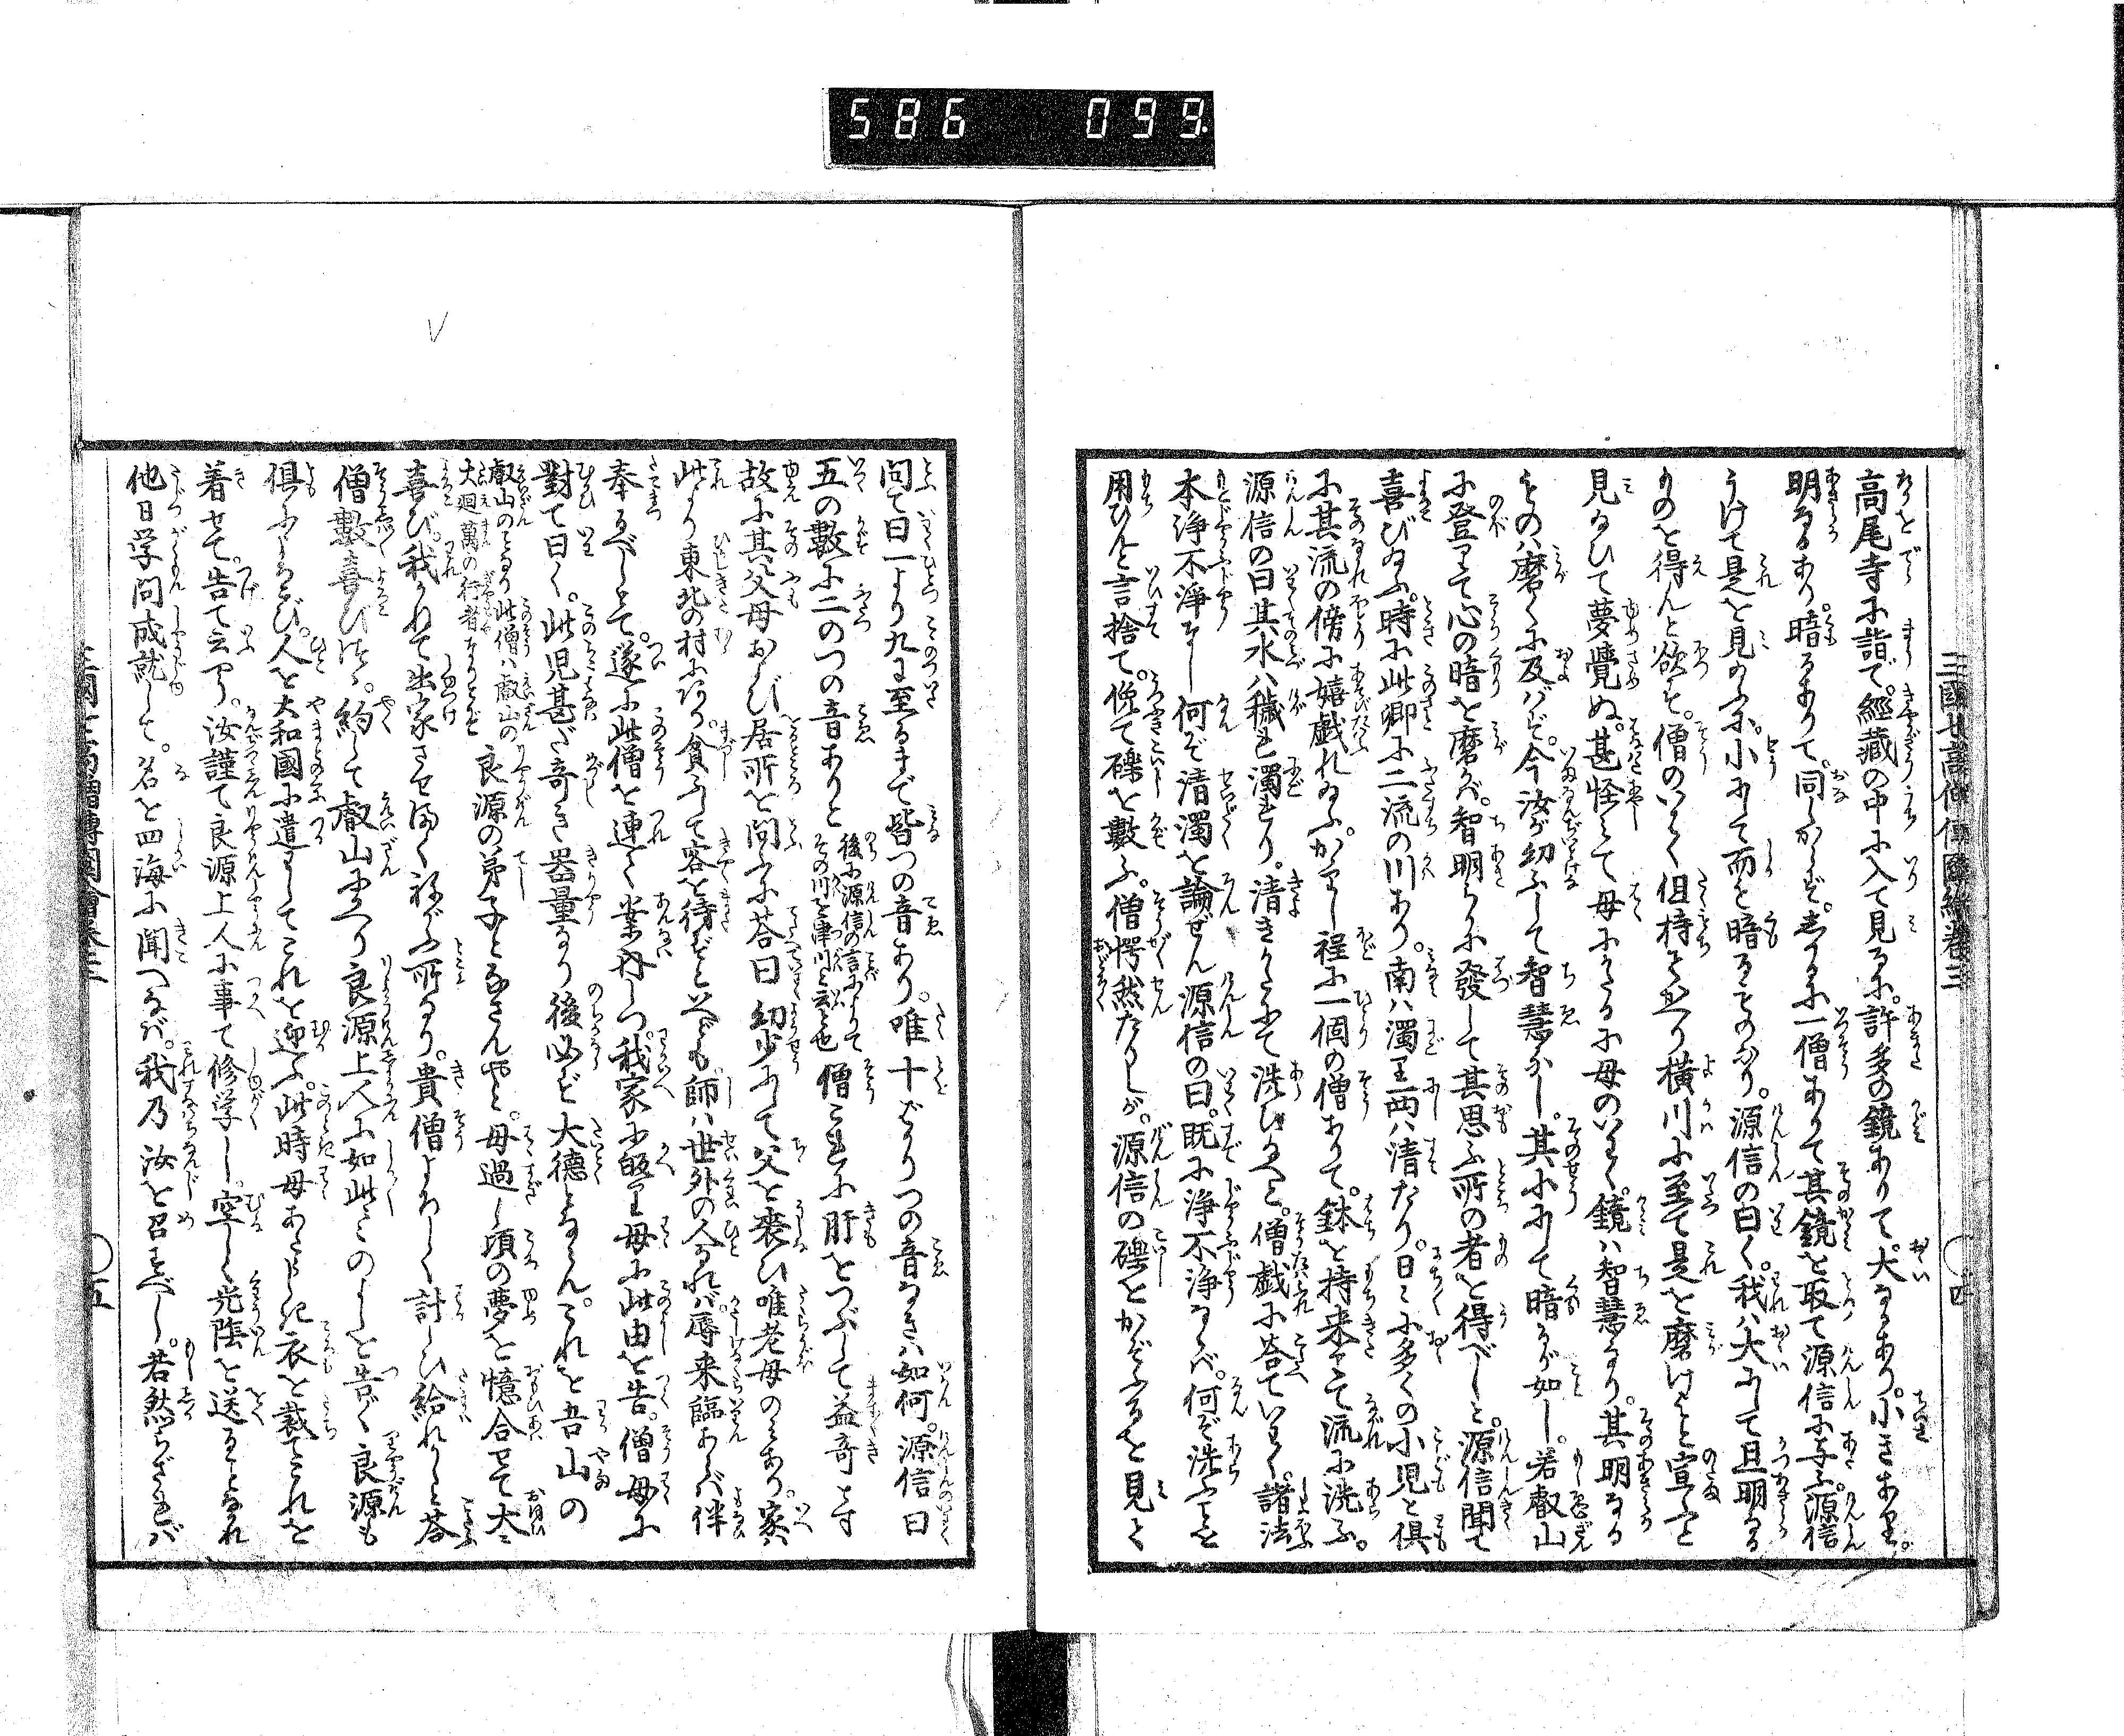 586 099
高尾寺に詣で。經藏の中に入て見るに。許多の鏡ありて。大なるあり。小きあり。
明なるあり。暗るありて。同しからず。然るに一僧ありて其鏡を取て源信に与ふ。源信
うけて是を見るに。小にして而も暗きものなり。源信の曰く。我ハ大にして且明なる
ものを得んと欲す。僧のいはく但持そかへり横川に至て是を磨けよと宣ふと
見給ひて夢覺ぬ。甚怪みて母にかたるに母のいはく。鏡ハ智慧なり。其明なる
ものハ磨くに及バず。今汝が幼ふして智慧なし。其小にして暗きが如し。若叡山
に登りて心の暗を磨かバ。智明らかに發して其思ふ所の者を得べしと。源信聞て
喜び給ふ。時に此郷に二流の川あり。南ハ濁り西ハ清たり。日々に多くの小児と倶
に其流の傍に嬉戯れ給ふ。かゝりし程に一個の僧ありて。鉢を持来りて流に洗ふ。
源信の曰其水ハ穢き濁れり。清きかたにて洗ひ給へと。僧戯に答ていはく。諸法
本浄不浄なし何ぞ清濁を論ぜん源信の曰。既に浄不浄なくバ。何ぞ洗ふことを
用ひんと言捨て。俛て礫を數ふ。僧愕然たりしが。源信の礫をかぞふるを見て
三國七高僧傳圖繪巻三 四
問て曰一より九に至るまで皆つの音あり。唯十ばかりつの音なきハ如何。源信曰
五の數に二のつの音ありと 後に源信の言によりて
その川を津川と云也 僧これに肝をつぶして益奇とす
故に其父母および居所を問ふに荅曰幼少にして父を喪ひ唯老母のミあり。家ハ
此より東北の村にあり。貧ふして客を待ずといへども。師ハ世外の人なれバ辱来臨あらバ伴
奉るべしとて。遂に此僧を連て案内しつ。我家に皈り母に此由を告。僧母に
對て曰く。此児甚だ奇き器量なり後必ず大德とならん。これを吾山の
叡山のことなり此僧ハ叡山の
大廻萬の行者なりとぞ 良源の弟子となさんやと。母過し頃の夢を憶合せて大に
喜び。我かねて出家させまく祢がふ所なり。貴僧よろしく計らひ給れかしと荅ふ
僧數喜びつゝ。約して叡山にかへり良源上人に如此々のよしを告ぐ良源も
倶によろこび。人を大和國に遣ハしてこれを迎ふ。此時母あたらしき衣を裁てこれを
着せて。告て云やう。汝謹て良源上人に事て修学し。空しく光陰を送ることなかれ
他日学問成就して。名を四海に聞へなバ。我乃汝を召すべし。若然らざれバ
三國七高僧傳圖會巻三 五